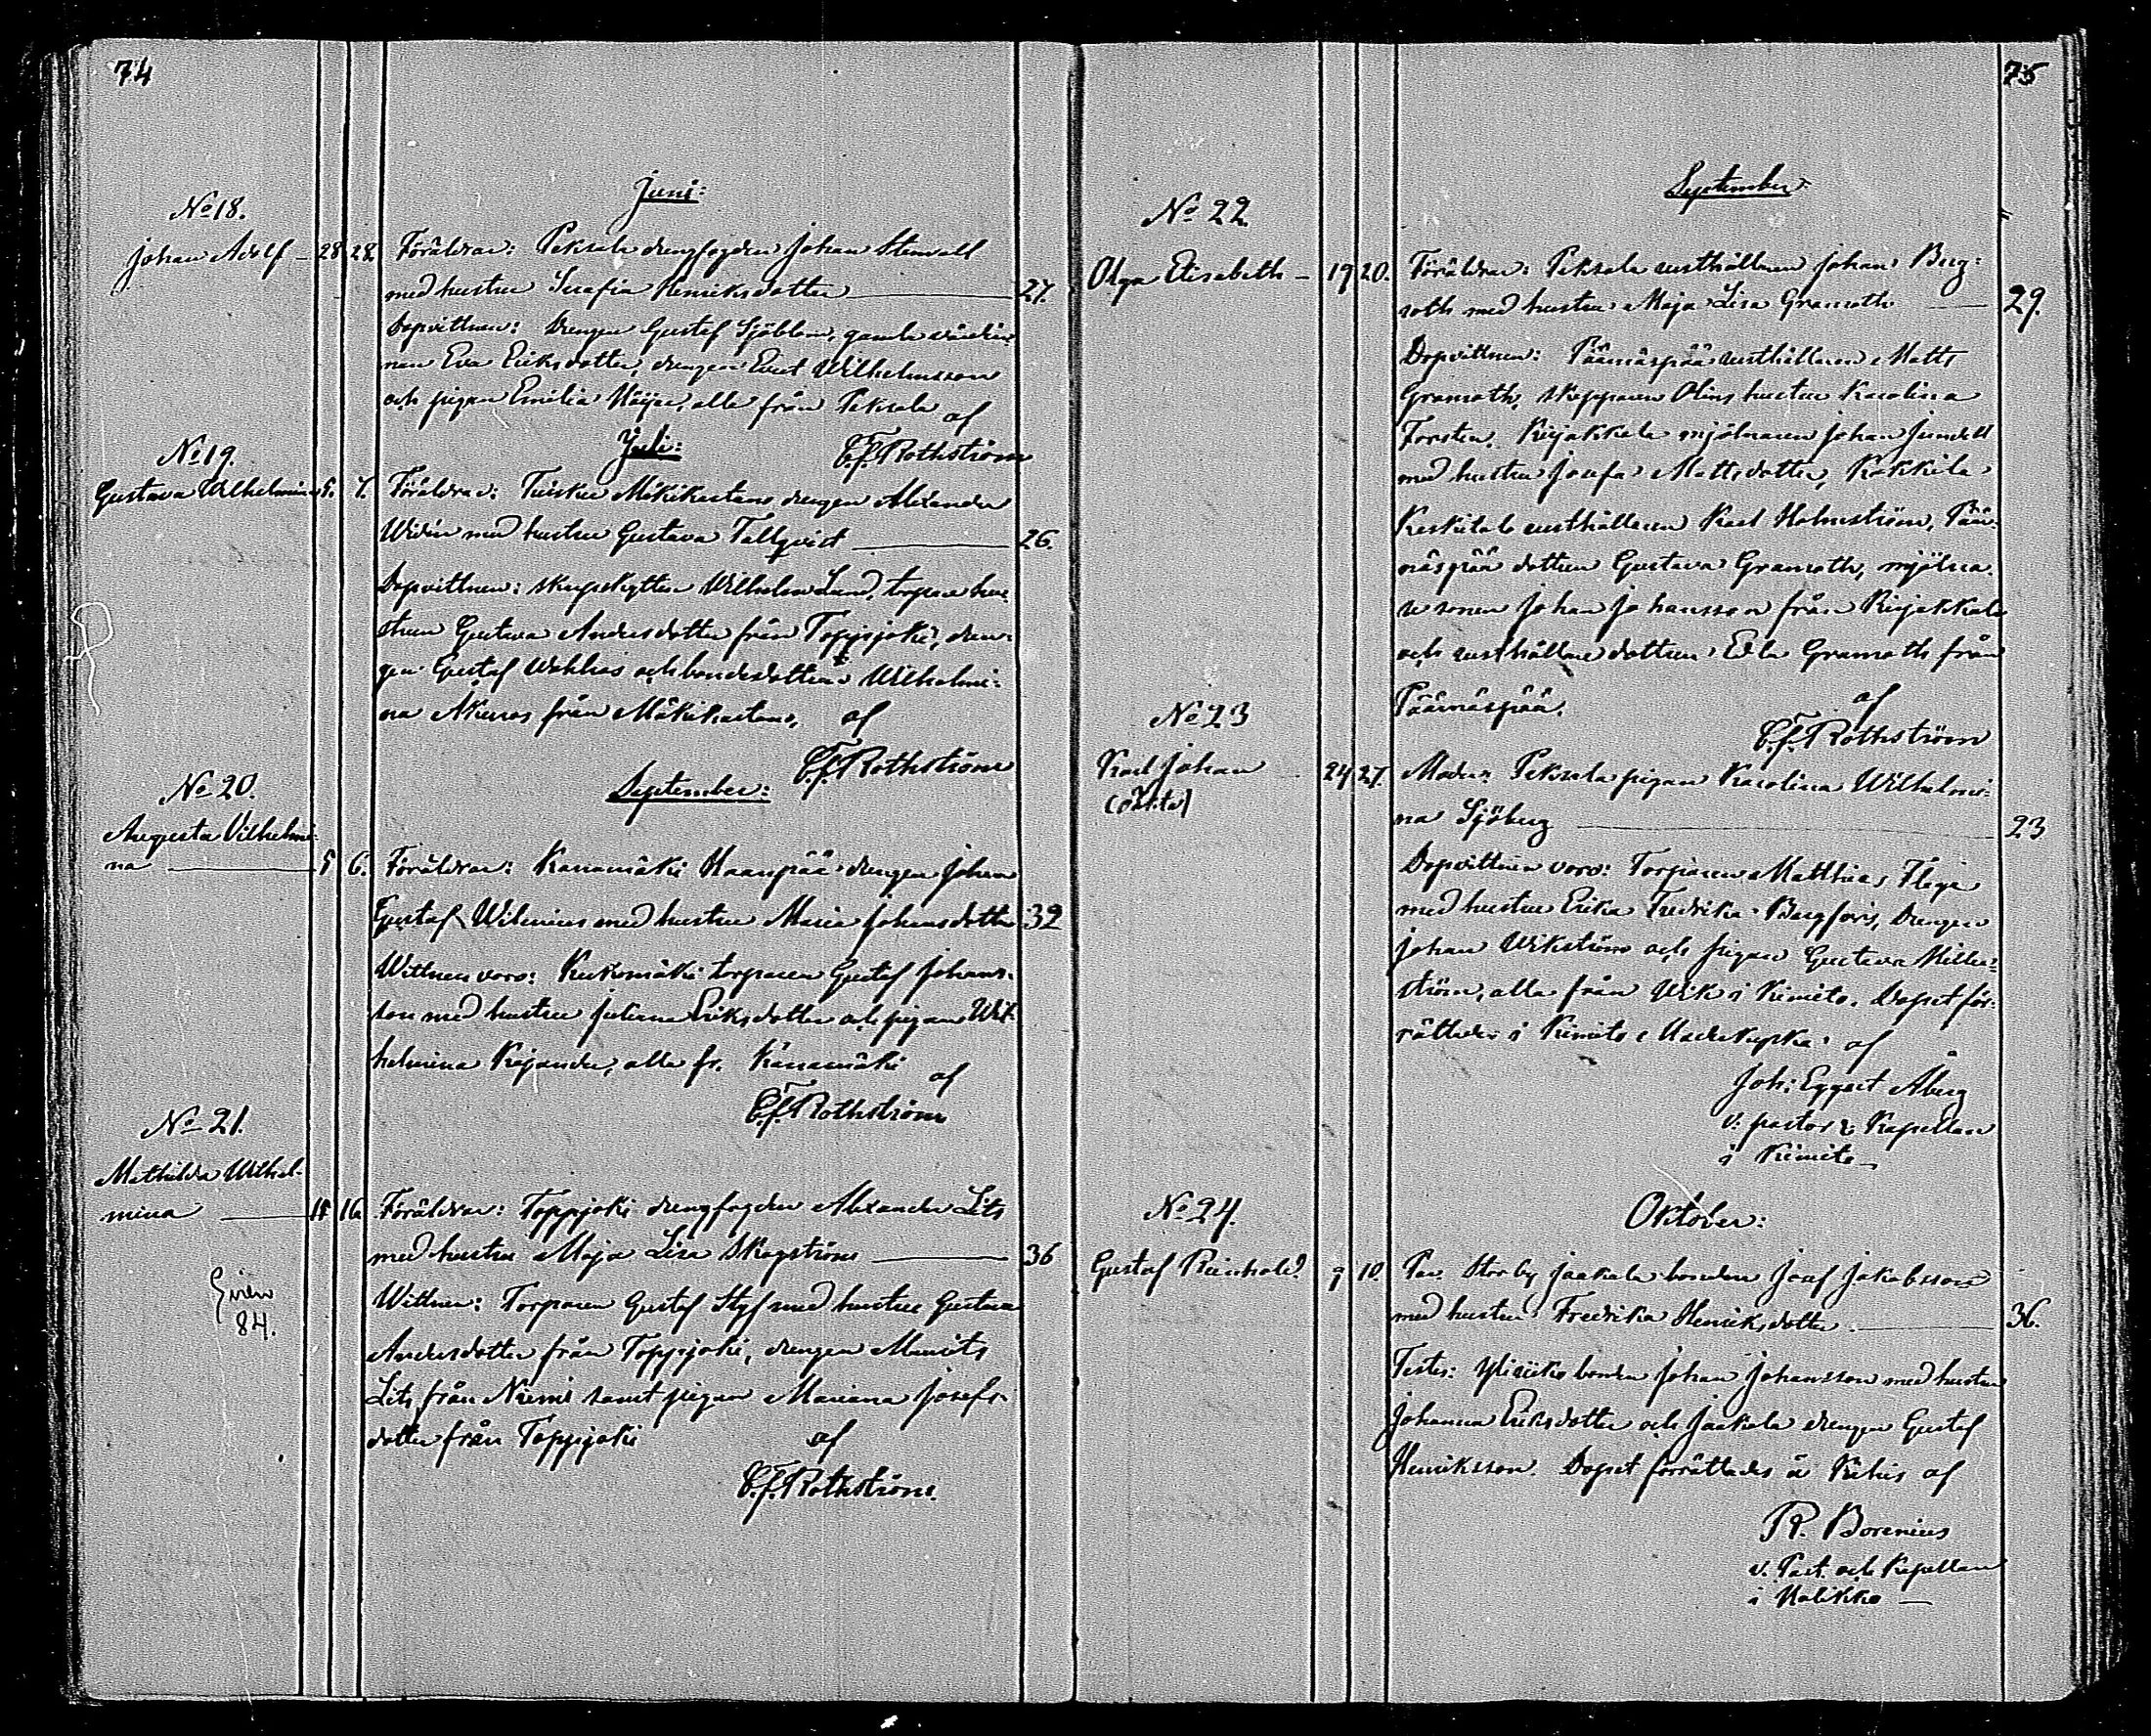 74
Juni:
No 18.
Johan Adolf - 28 28. Föräldrar: Peksala drengfogden Johan Stenvall
med hustru Serafia Henriksdotter 27.
Dopvittnen: Drengen Gustaf Sjöblom, gamla värdin-
nan Eva Eriksdotter, drengen Evert Wilhelmsson
och pigan Emilia, alla från Peksala af
C.F. Rothström
Juli:
No 19.
Gustava Wilhelmina 5. 7. Föräldrar: Tuiskus Mäkikastano drengen Alexander
Widén med hustru Gustava Tallqvist 26.
Dopvittnen: Wilhelm Lund, torpare hu-
strun Gustava Andersdotter från Toppjoki, dren-
gen Gustaf Wahlros och bondedottern Wilhelmi-
na från Mäkikastano, af
C.F. Rothström
September:
No 20.
Augusta Vilhelmi-
na 5 6. Föräldrar: Kanamäki Haanpää drengen Johan
Gustaf Wilenius med hustru Maria Johansdotter 32
Wittnen voro: torparen Gustaf Johans-
son med hustru Juliana Eriksdotter och pigan Wil-
helmina Kejander, alla fr. Kanamäki af
C.F. Rothström
No 21.
Mathilda Wilhel-
mina 11 16. Föräldrar: Toppjoki drengfogden Alexander Lits
med hustru Maja Lisa Skogström 36
Wittnen: Torparen Gustaf Styf med hustru Gustava
Andersdotter från Toppjoki, drengen Maurits
Lits från Niemi samt pigan Mariana Josefs-
dotter från Toppjoki af
C.F. Rothström.
84.
75
September
No 22
Olga Elisabeth - 19 20. Föräldrar: Peksala rusthållaren Johan Berg-
roth med hustru Maja Lisa Granroth 29.
Dopvittnen: Päärnäspää rusthållaren Matts
Granroth, skepparen Olins hustru Karolina
Forstén, Kirjakkala mjölnaren Johan Jundell
med hustru Josefa Mattsdotter, Kokkila
Keskitalo rusthållaren Karl Holmström, Pää-
näspää dottren Gustava Granroth, mjölna-
re sonen Johan Johansson från Kirjakkala
och rusthållare dottren Edla Granroth från
Päärnäspää. af
C.F. Rothström
No 23
Karl Johan 24 27. Moder: Peksala pigan Karolina Wilhelmi-
(oäkta)
na Sjöberg 23
Dopvittnen voro: Torparen Matthias
med hustru Erika Fredrika Bergfors, Drengen
Johan Wikström och pigan Gustava Heller-
ström, alla från Wik i Kimito. Dopet för-
rättades i Kimito af
Joh: Eggert Åberg
v. pastor & Kapellan
i Kimito
Oktober:
No 24.
Gustaf Reinhold. 9 10. Par. Storby Jaakola bonden Josef Jakobsson
med hustru Fredrika Henriksdotter 36.
Testes: bonden Johan Johansson med hustru
Johanna Eriksdotter och Jaakola drengen Gustaf
Henriksson. Dopet förrättades af
R. Borenius
v. Past. och Kapellan
i Halikko